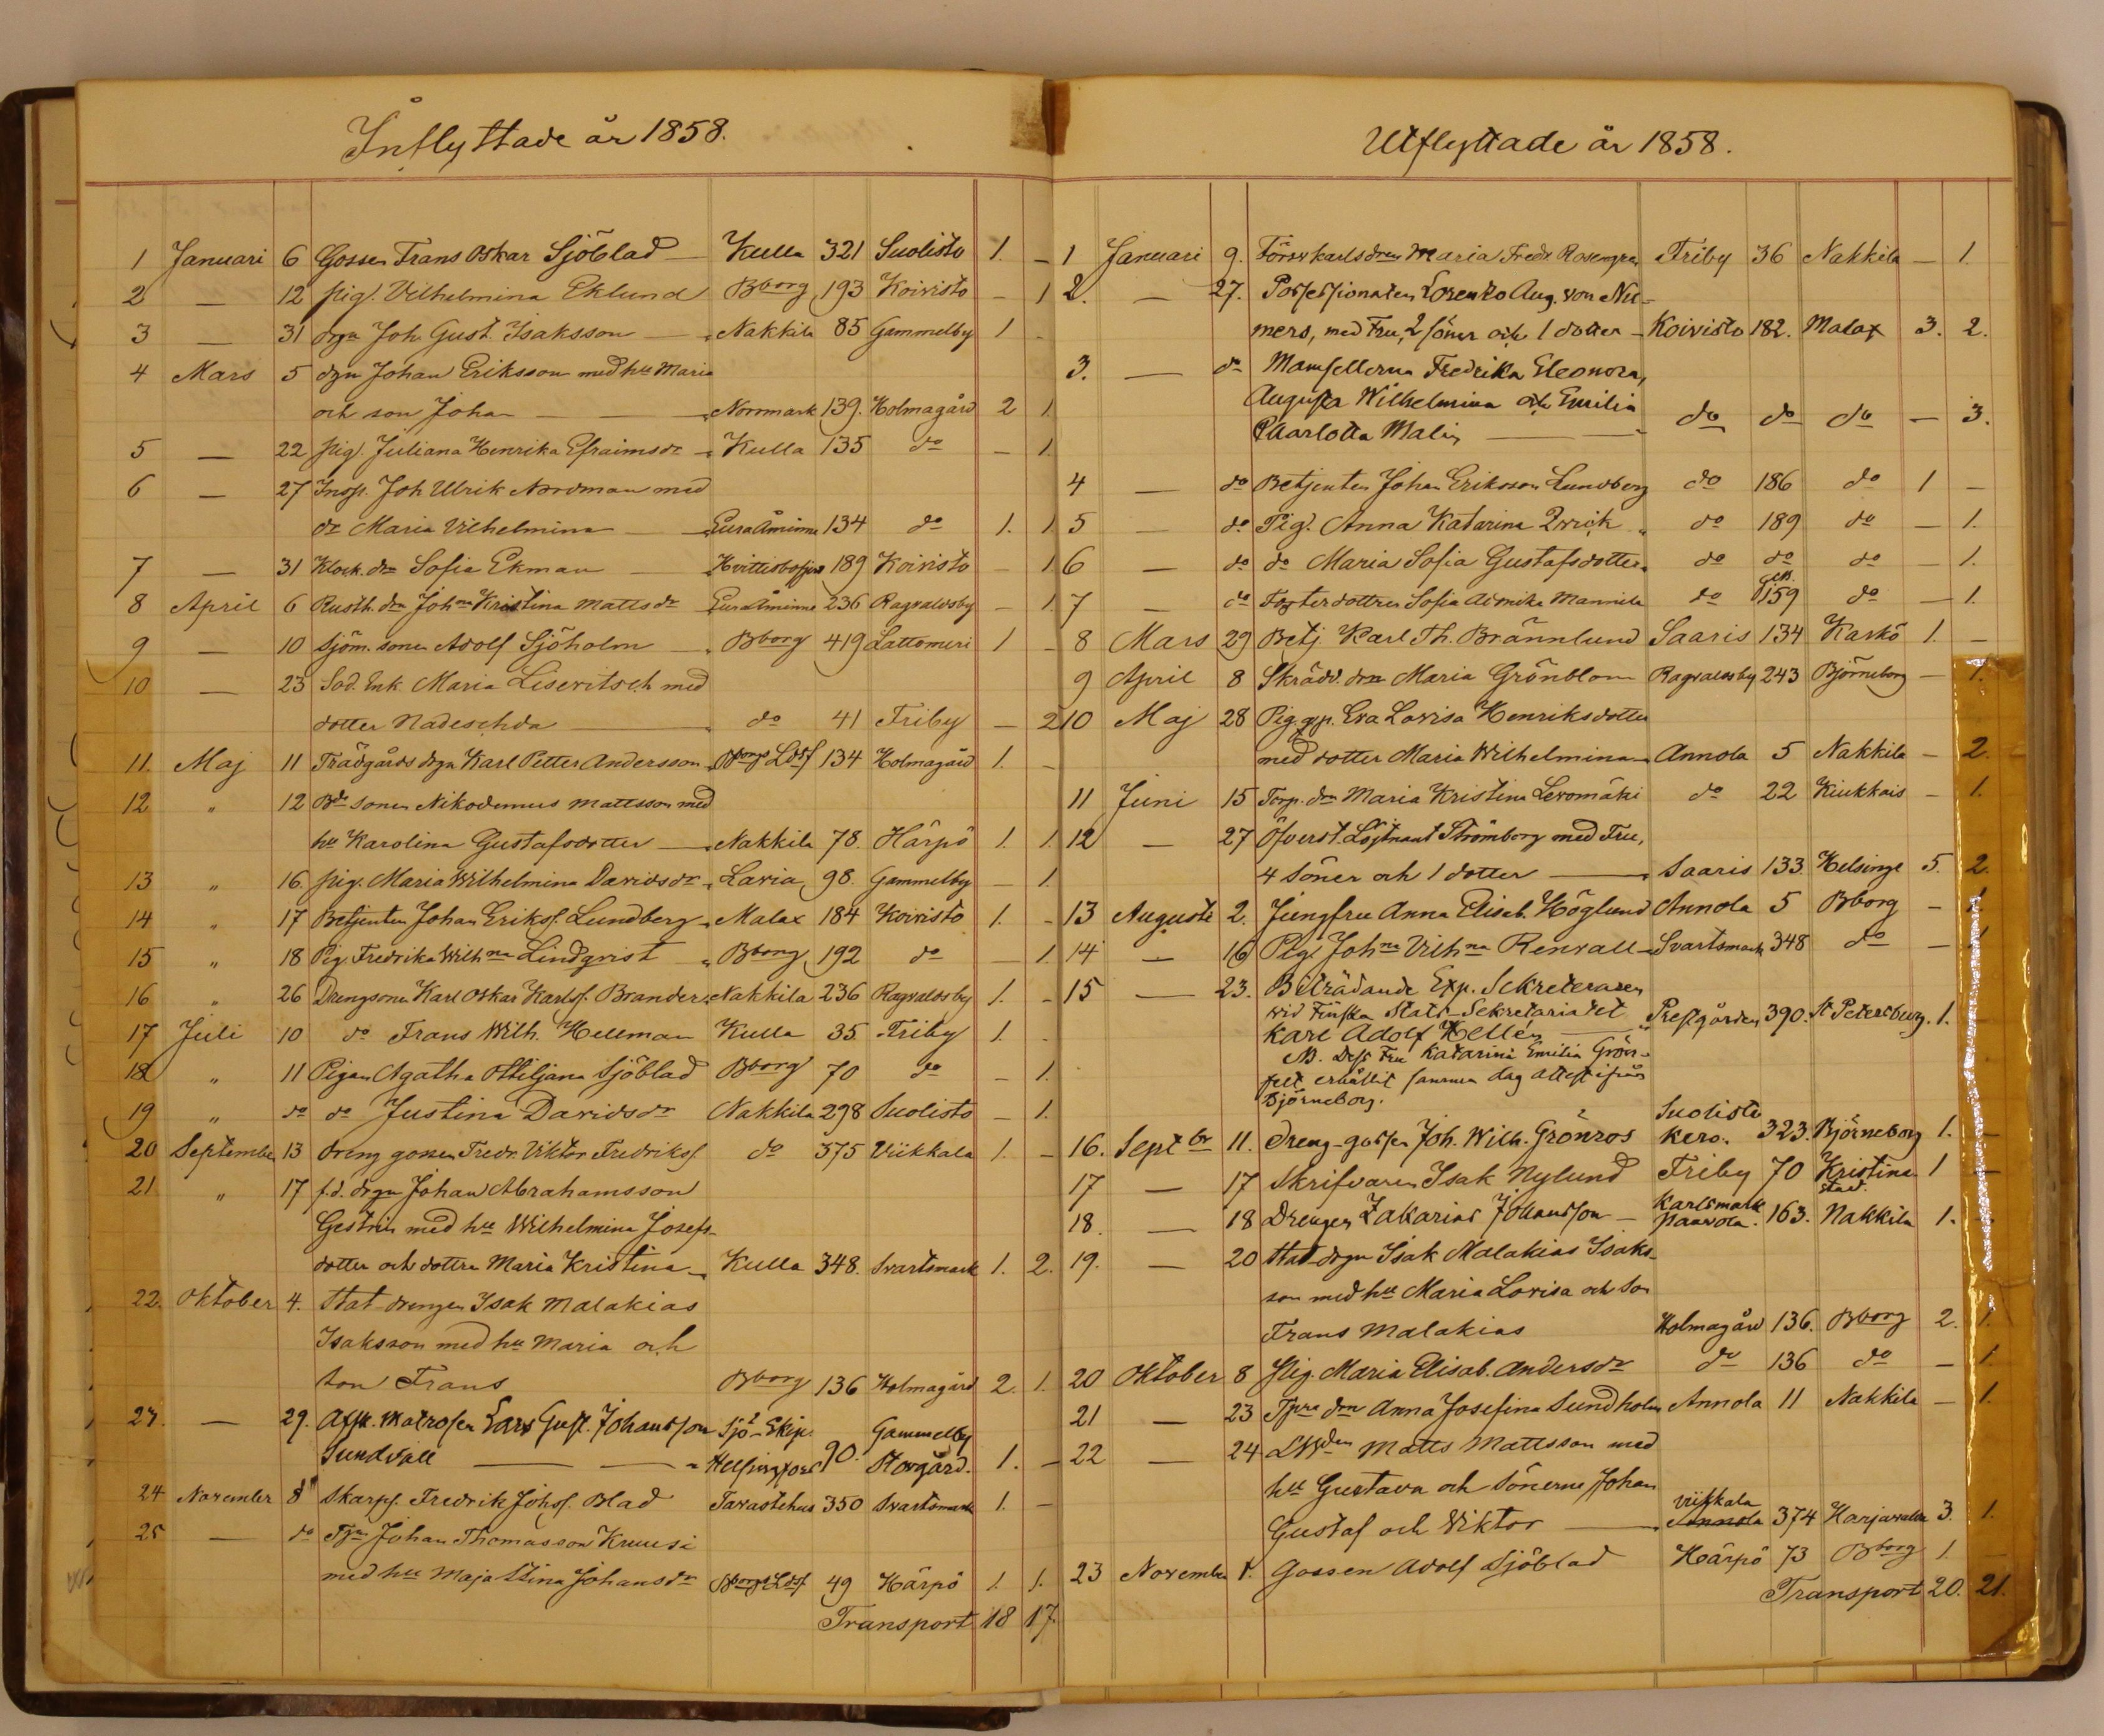 Inflyttade år 1858.
1 Januari 6 Gossen Frans Oskar Sjöblad Kulla 321 Suolisto 1. –
2 — 12 pig. Vilhelmina Eklund Bborg 193 Koivisto – 1
3 — 31 drgn Joh. Gust. Isaksson — Nakkila 85 Gammelby 1 –
4 Mars 5 dgn Johan Eriksson med hu Maria
och son Johan — Norrmark 139. Holmagård 2 1.
5 — 22 pig. Juliana Henrika Efraimsdr Kulla 135 do – 1.
6 — 27 Insp. Joh Ulrik Nordman med
dr Maria Vilhelmina — Eura Åminne 134 do 1. 1.
7 — 31 Klock. dn Sofia Ekman 189 Koivisto – 1.
8 April 6 Rusth. dn Johna Kristina Mattsdr Eura Åminne 236 Ragvaldsby – 1.
9 — 10 Sjöm. sonen Adolf Sjöholm — Bborg 419 Lattomeri 1 –
10 — 23 Sod. Enk. Maria Liseritsch med
dotter Nadeschda — do 41 Friby — 2
11. Maj 11 Trädgårds drgn Karl Petter Andersson Bborgs Ldsf 134 Holmagård 1. –
12 " 12 Bde sonen Nikodemus Mattsson med
hu Karolina Gustafsdotter — Nakkila 78. Härpö 1. 1.
13 " 16. pig. Maria Wilhelmina Davidsdr Lavia 98. Gammelby — 1.
14 " 17 Betjenten Johan Eriks. Lundberg Malax 184 Koivisto 1. –
15 " 18 Pig. Fredrika Wilhna Lindqvist Bborg 192 do — 1.
16 " 26 Drengsonen Karl Oskar Karls. Brander Nakkila 236 Ragvaldsby 1. –
17 Juli 10 do Frans Wilh. Hellman Kulla 35. Friby 1. –
18 " 11 Pigan Agatha Ottiljana Sjöblad Bborg 70 do – 1.
19 " do do Justina Davidsdr Nakkila 298 Suolisto – 1.
20 September 13 dreng gossen Fredr. Viktor Fredriks. do 375 Viikkala 1. –
21 " 17 f.d. drgn Johan Abrahamsson
Gestrin med hu Wilhelmina Josefs-
dotter och dottra Maria Kristina Kulla 348. Svartsmark 1. 2.
22. Oktober 4. Stat drengen Isak Malakias
Isaksson med hu Maria och
son Frans Bborg 136 Holmagård 2. 1.
23. — 29. Afsk. Matrosen Lars Gust. Johansson Sjö-Ekip. Gammelby
Sundvall — Helsingfors 90. Storgård. 1. –
24 November 8 Skarps. Fredrik Johs. Blad Tavastehus 350 Svartsmark 1. –
25 — do Johan Thomasson Kruusi
med hu Maja Stina Johansdr Bborgs Ldsf 49 Härpö 1. 1.
Transport 18 17.
Utflyttade år 1858.
1 Januari 9. Maria Fredr. Rosengren Friby 36 Nakkila – 1.
2. — 27. Possessionaten Lorentzo Aug. von Nu-
mers, med Fru, 2 söner och 1 dotter – Koivisto 182. Malax 3. 2.
3. — do Mamsellerna Fredrika Eleonora,
Augusta Wilhelmina och Emilia
Charlotta Malin — do do do – 3.
4 — do Betjenten Johan Eriksson Lundberg do 186 do 1 –
5 — do Pig. Anna Katarina Qvick do 189 do – 1.
6 — do do Maria Sofia Gustafsdotter do do do – 1.
7 — do Fosterdottren Sofia Mannila do 159 do – 1.
8 Mars 29 Betj. Karl Th. Brännlund Saaris 134 Kaskö 1. –
9 April 8 Skrädd. drn Maria Grönblom Ragvaldsby 243 Björneborg — 1.
10 Maj 28 Pig. Eva Lovisa Henriksdotter
med dotter Maria Wilhelmina Annola 5 Nakkila – 2.
11 Juni 15 Torp. dn Maria Kristina Levomäki do 22 Kiukkais – 1.
12 — 27 Öfverst. Löjtnant Strömborg med Fru,
4 Söner och 1 dotter — Saaris 133. Helsinge 5. 2.
13 Augusti 2. Jungfru Anna Elisab. Höglund Annola 5 Bborg – 1
14 — 16 Pig. Johna Vilhna Renvall Svartsmark 348 do – 1
15 — 23. Biträdande Exp. Sekreteraren
wid Finska Stats-Sekretariatet Prestgården 390. St Petersburg. 1.
Karl Adolf Hellén —
NB. Dess Fru Katarina Emilia Grön-
felt erhållit samma dag attest ifrån
Björneborg.
Suolisto
16. Septbr 11. Dreng-gossen Joh. Wilh. Grönros Kero. 323. Björneborg 1. –
17 — 17 Skrifvaren Isak Nylund Friby 70 Kristina 1 –
stad.
Karlsmark
18. — 18 Drengen Zakarias Johansson – 163. Nakkila 1. –
19. — 20 Stat-drgn Isak Malakias Isaks-
son med hu Maria Lovisa och Son
Frans Malakias Holmagård 136. Bborg 2. 1.
20 Oktober 8 pig. Maria Elisab. Andersdr do 136 do – 1.
21 — 23 Anna Josefina Sundholm Annola 11 Nakkila – 1.
22 — 24 Matts Mattsson med
hu Gustava och Sönerne Johan
Viikkala
Gustaf och Viktor — Annola 374 Harjavalta 3. 1.
23 November 1. Gossen Adolf Sjöblad Härpö 73 Bborg 1. –
Transport 20. 21.